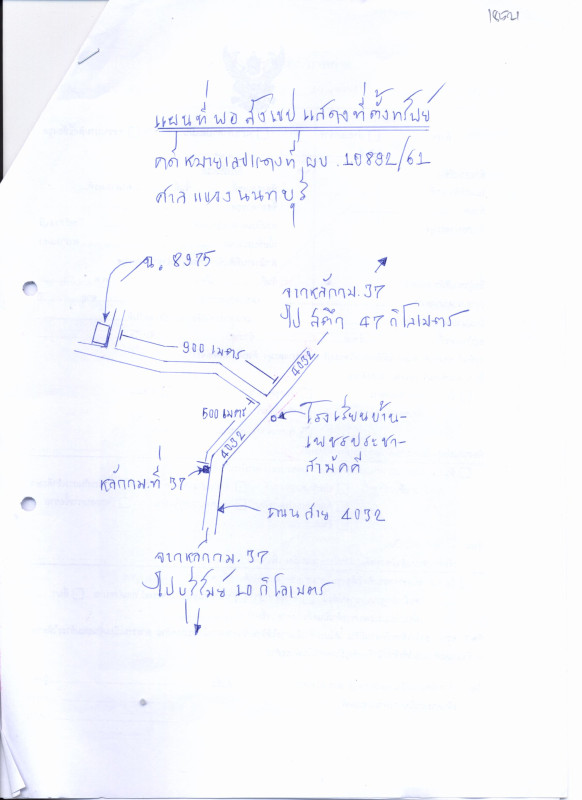 แผนที่พอสังเขปแสดงที่ตั้งทรัพย์
คดีหมายเลขแดงที่ ผบ. 10892/61
ศาลแขวงนนทบุรี
ฉ. 8975
จากหลักกม. 37
ไป สตึก 47 กิโลเมตร
900 เมตร
4032
500 เมตร
โรงเรียนบ้าน-
เพชรประชา-
สามัคคี
4032
หลักกม.ที่ 37
ถนนสาย 4032
จากหลักกม. 37
ไปบุรีรัมย์ 10 กิโลเมตร